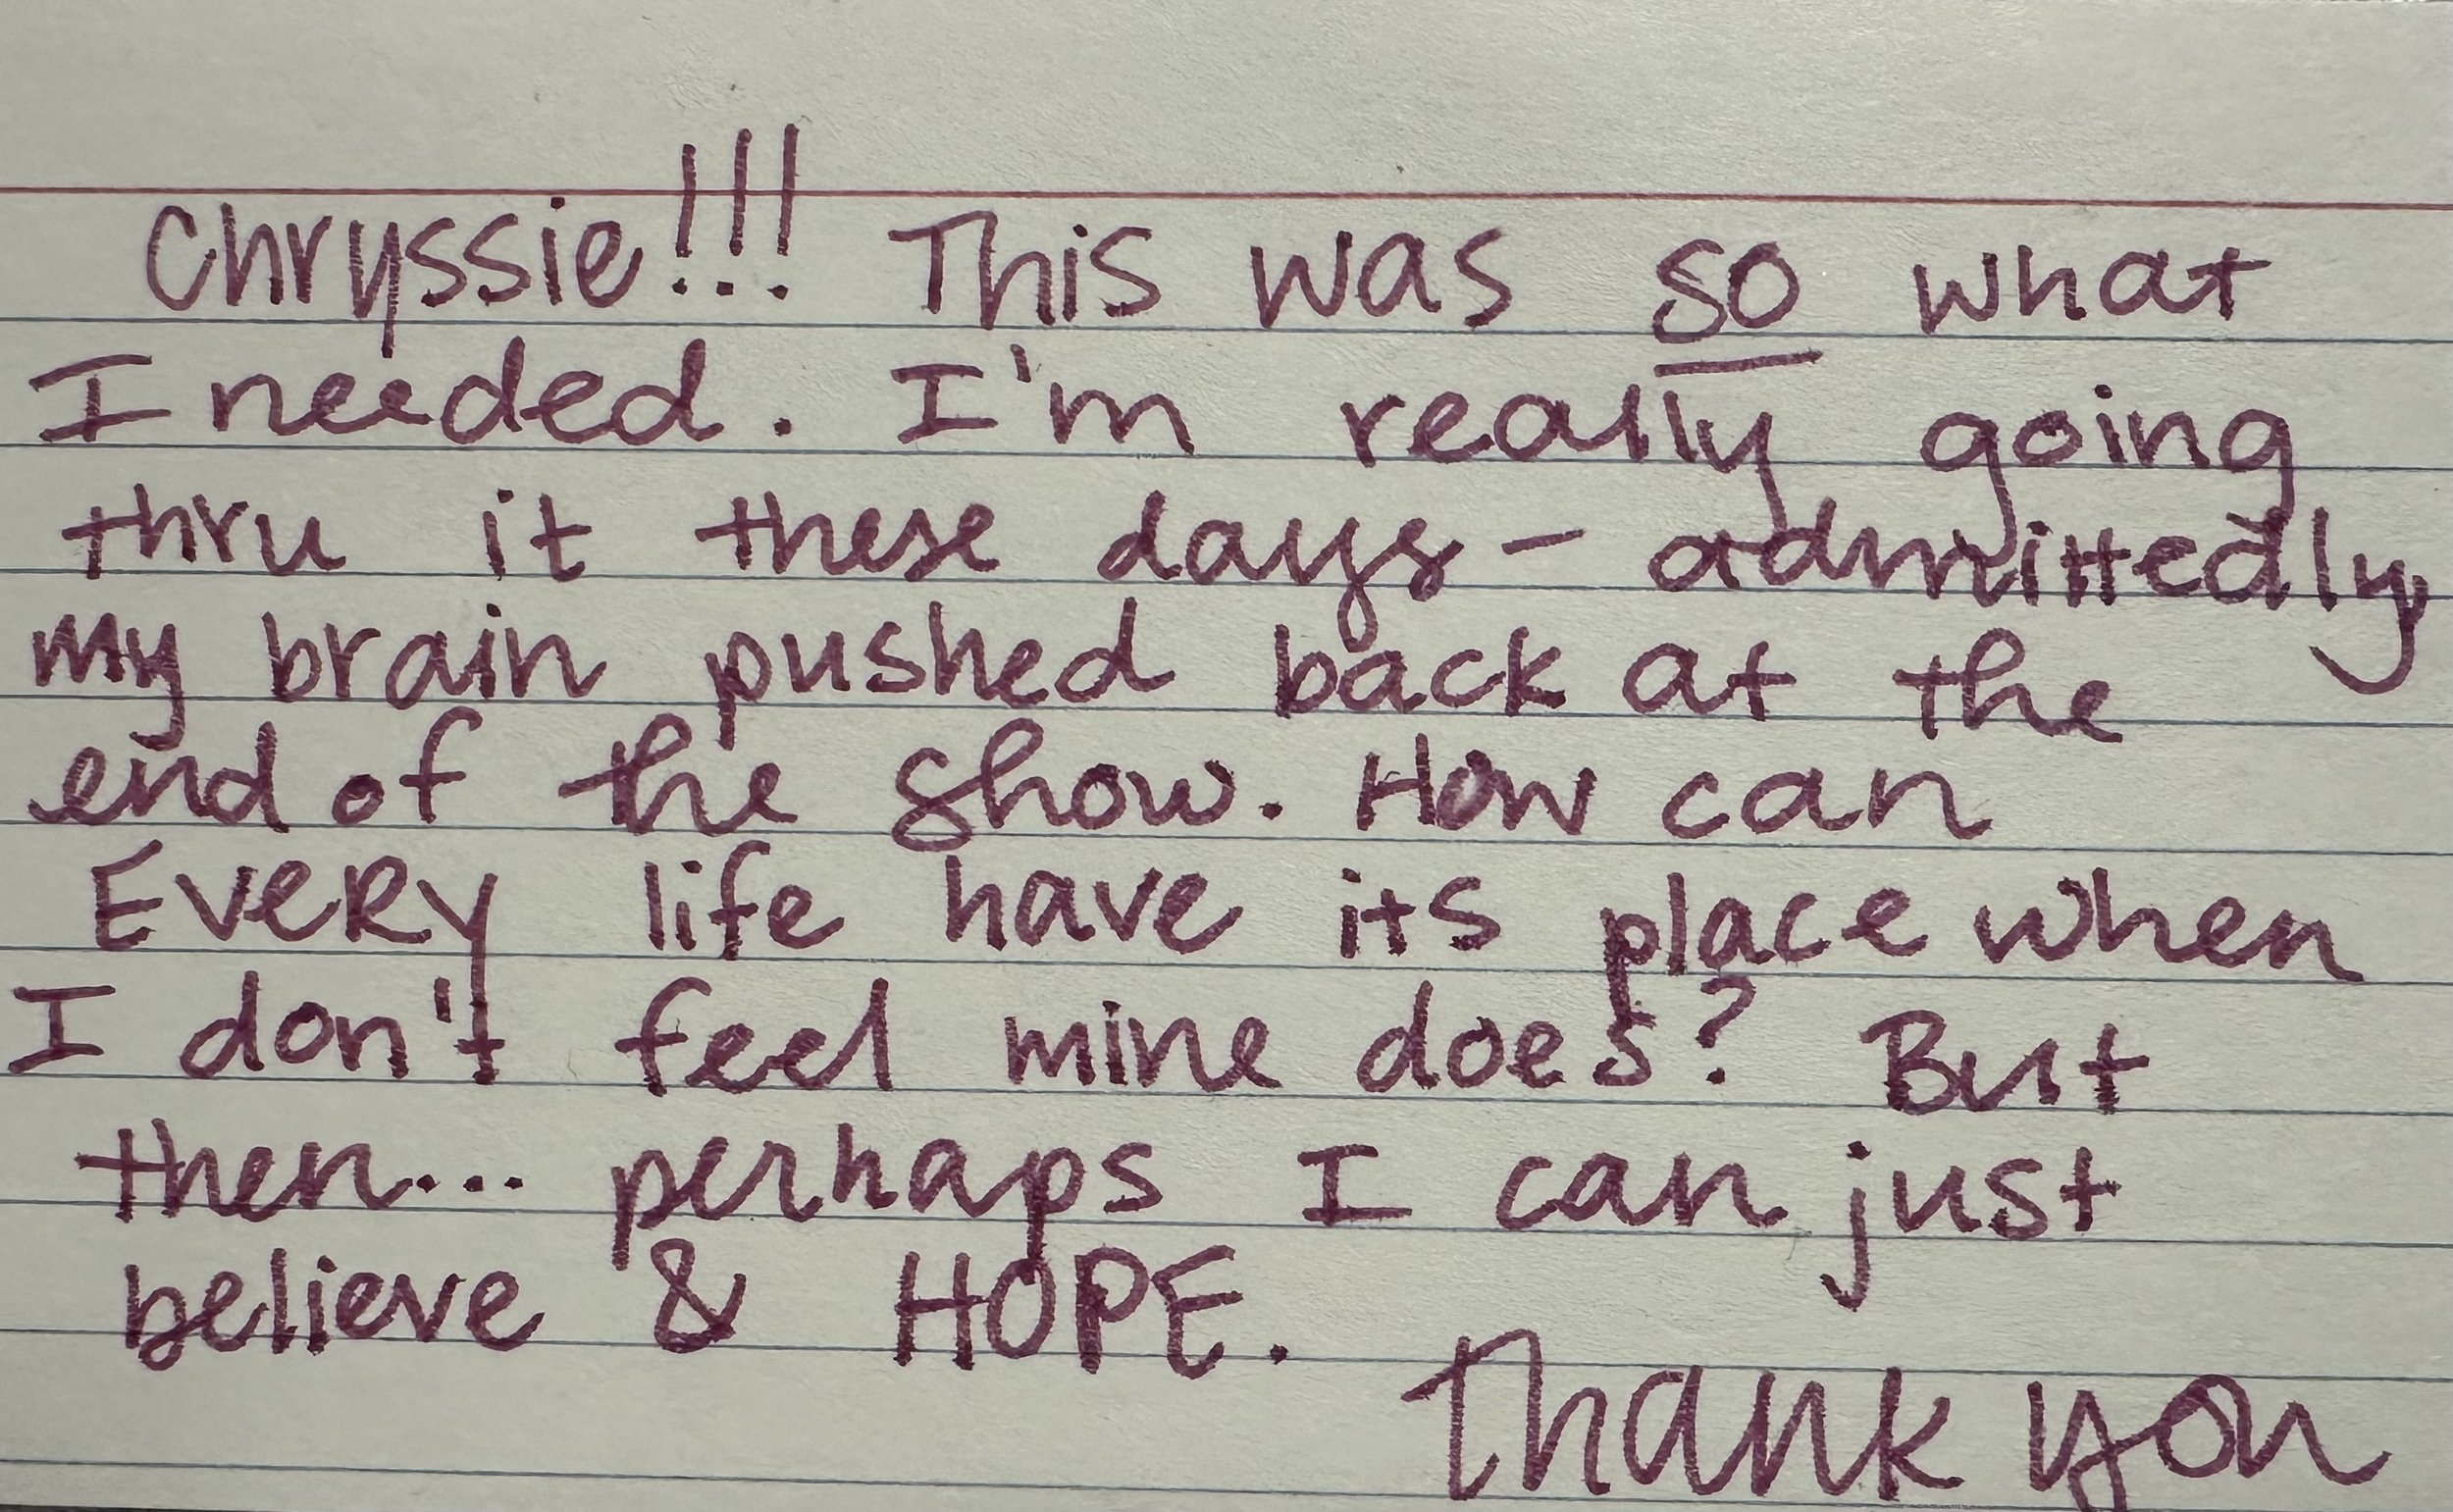 Chryssie!!! This was so what
I needed. I'm really going
thru it these days - admittedly,
my brain pushed back at the
end of the show. How can
EVERY life have its place when
I don't feel mine does? But
then... perhaps I can just
believe & HOPE.
Thank you